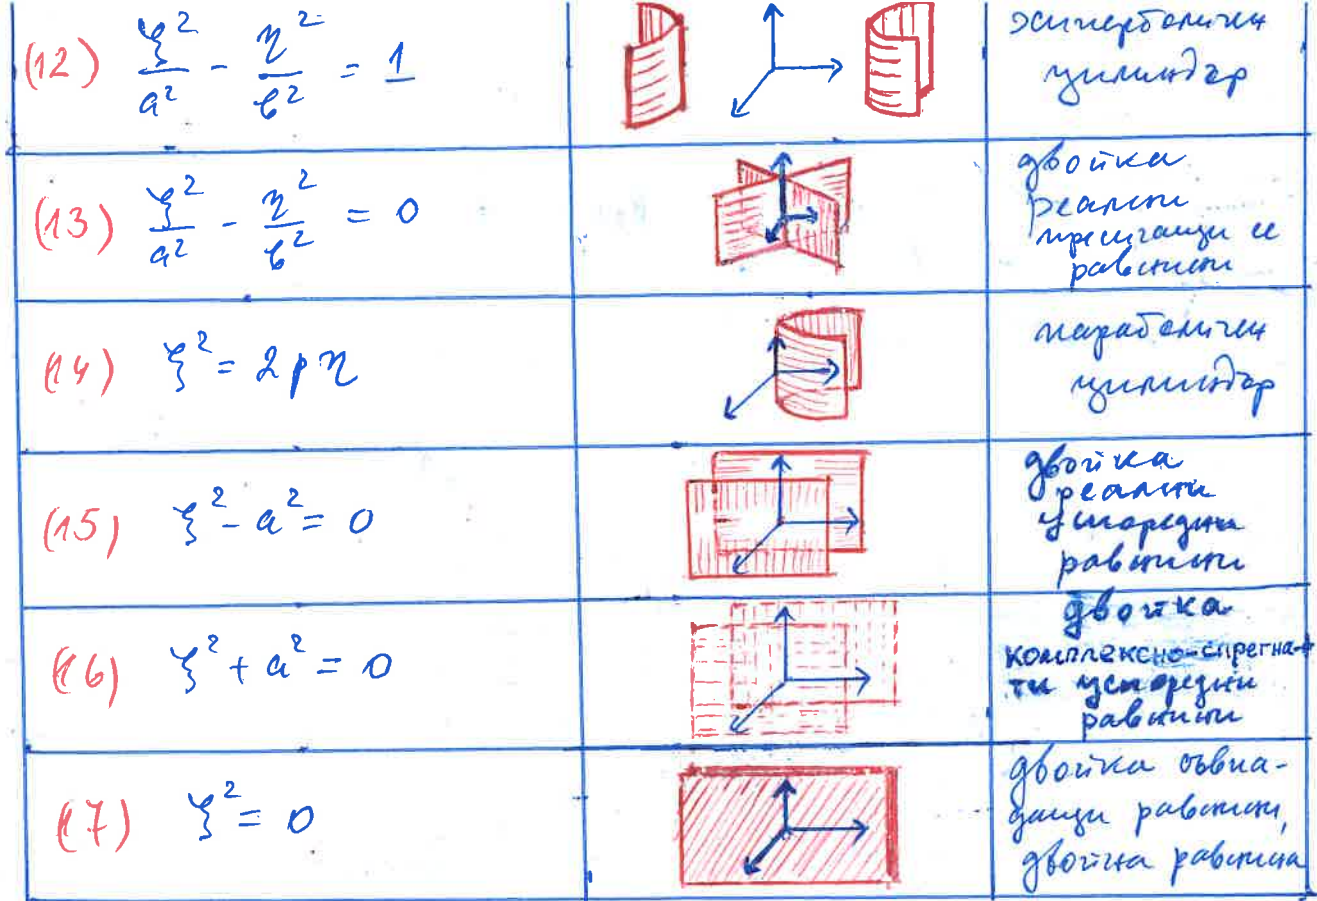 (12) ξ²/a² - η²/b² = 1
хиперболичен
цилиндър
(13) ξ²/a² - η²/b² = 0
двойка
реални
пресичащи се
равнини
(14) ξ² = 2pη
параболичен
цилиндър
(15) ξ² - a² = 0
двойка
реални
успоредни
равнини
(16) ξ² + a² = 0
двойка
комплексно-спрегна-
ти успоредни
равнини
(17) ξ² = 0
двойка съвпа-
дащи равнини,
двойна равнина